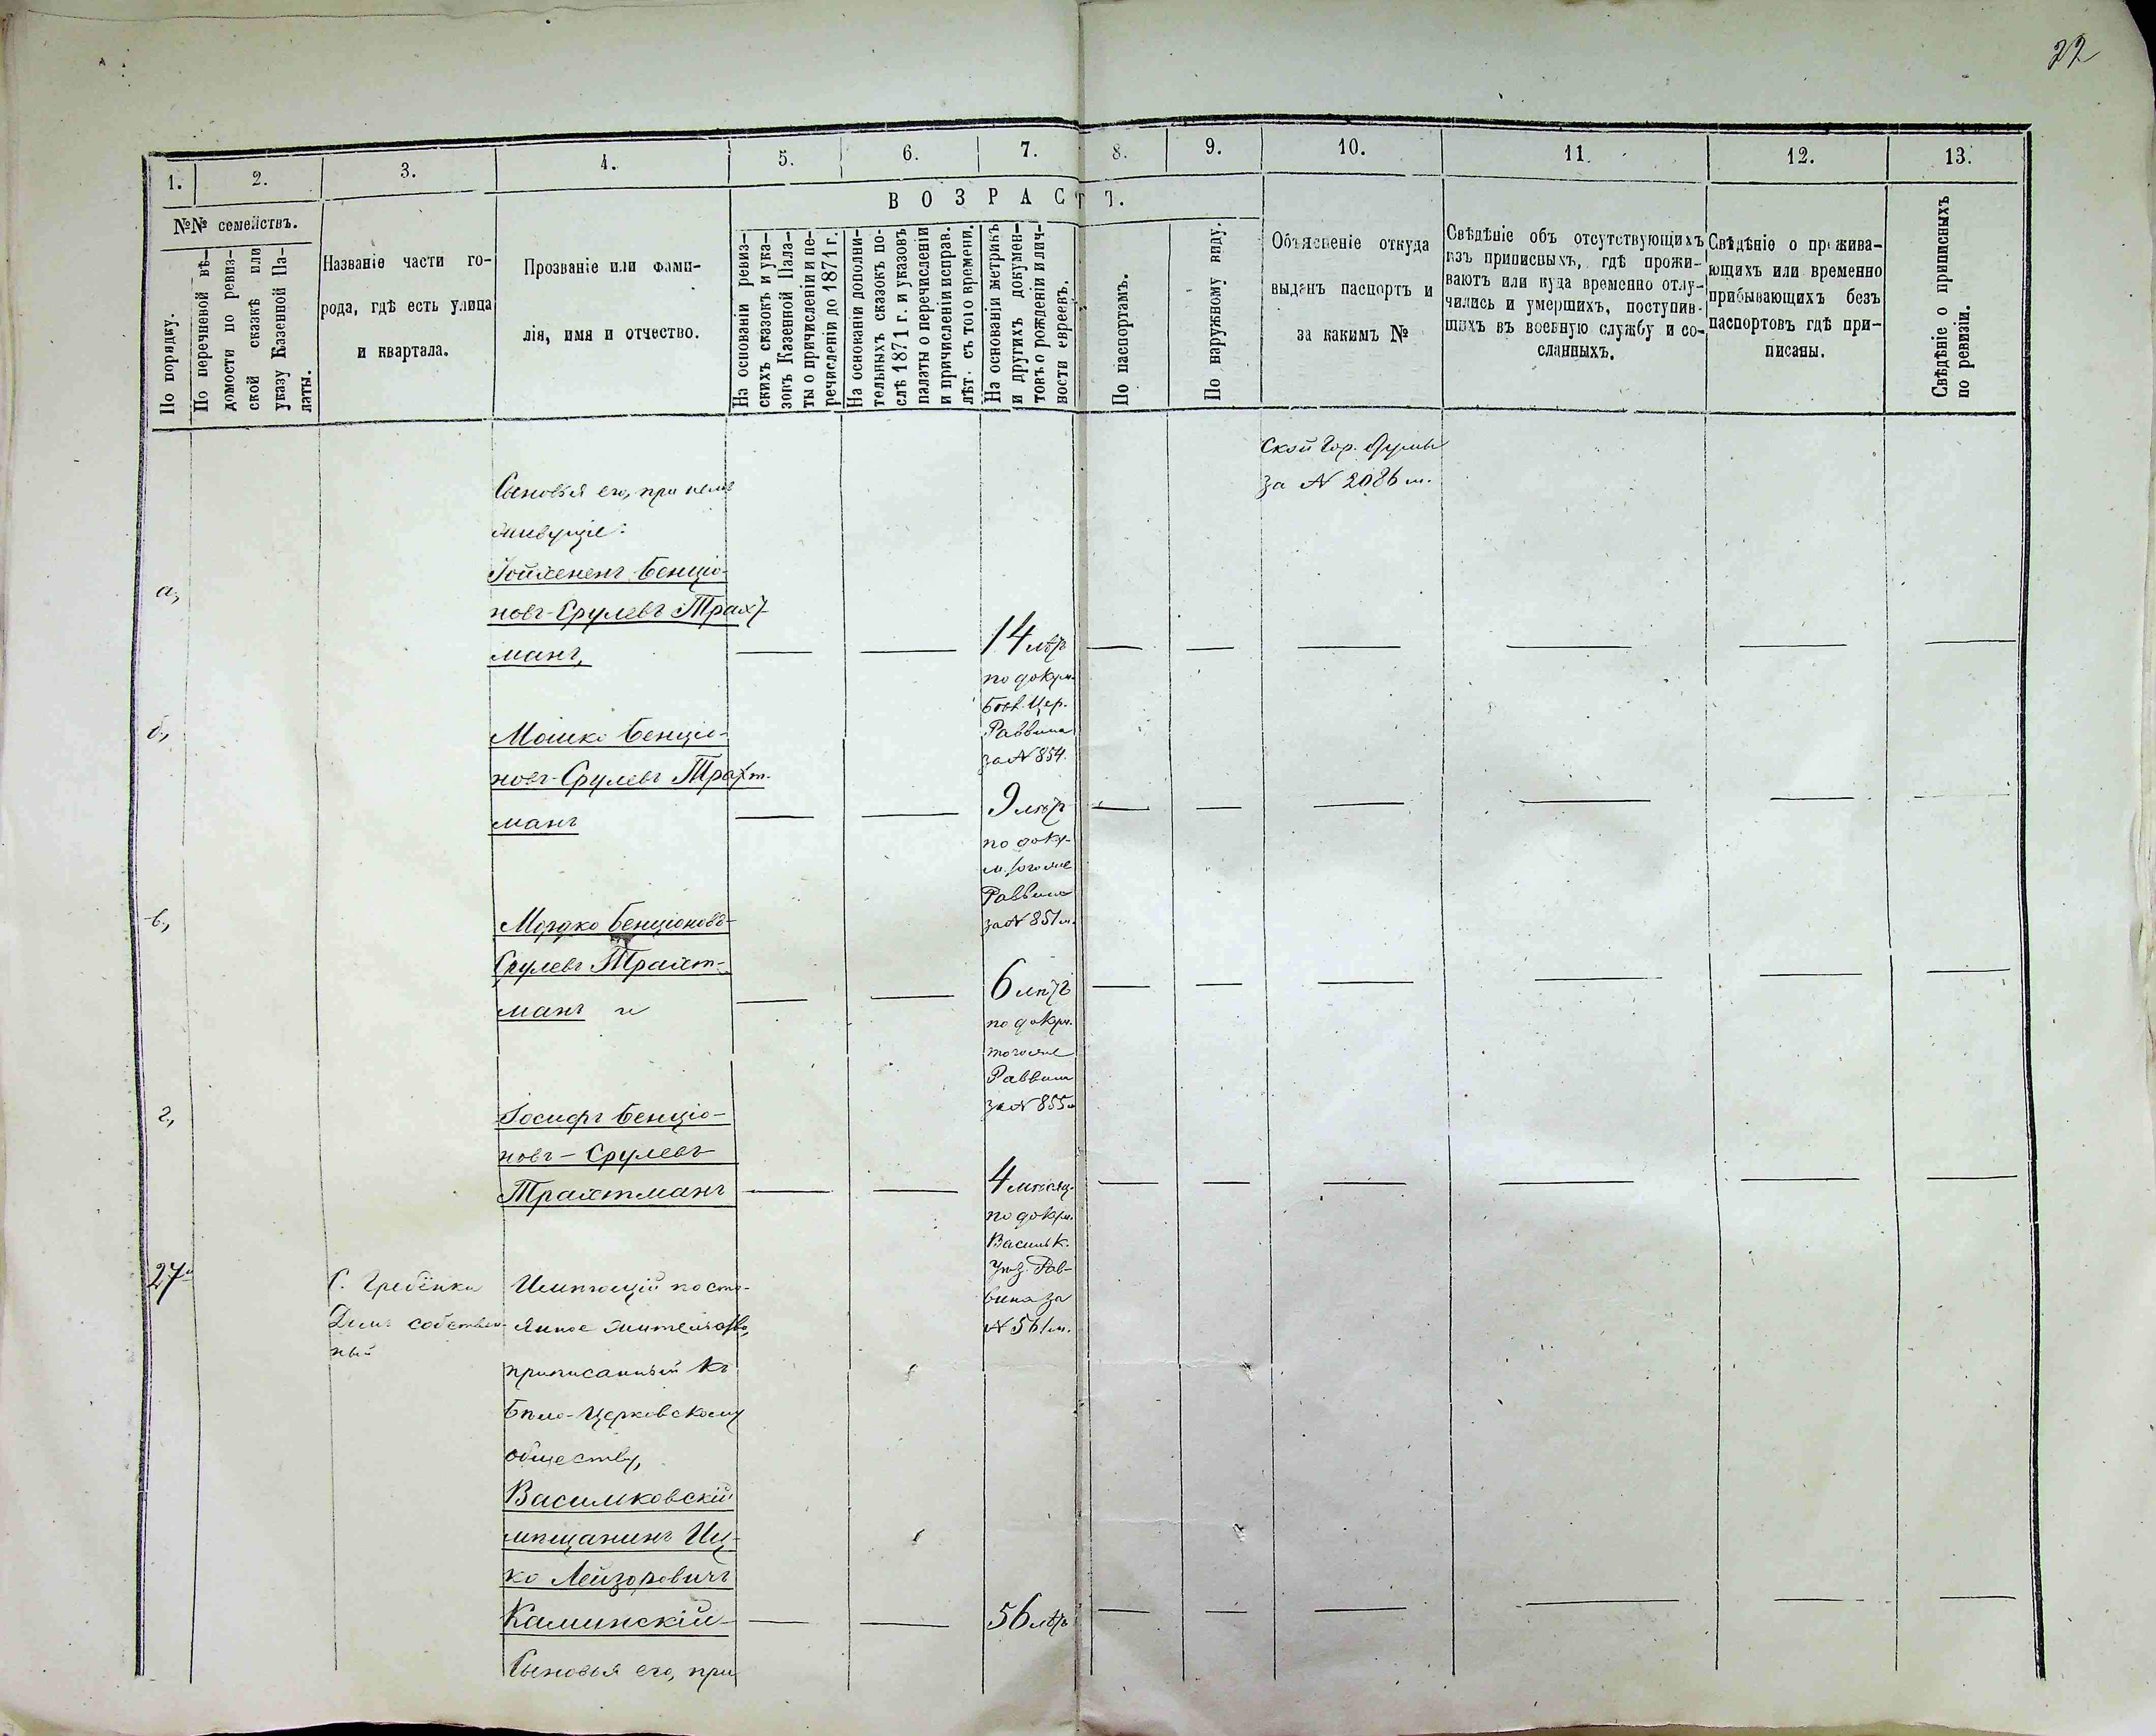 22
1.
2.
3.
4.
5.
6.
7.
8.
9.
10.
11.
12.
13.
№№ семействъ.
По порядку.
По перечневой вѣ-
домости по ревиз-
ской сказкѣ или
указу Казенной Па-
латы.
Названіе части го-
рода, гдѣ есть улица
и квартала.
Прозваніе или фами-
лія, имя и отчество.
ВОЗРАСТЪ.
На основаніи ревиз-
скихъ сказокъ и ука-
зовъ Казенной Пала-
ты о причисленіи и пе-
речисленіи до 1871 г.
На основаніи дополни-
тельныхъ сказокъ по-
слѣ 1871 г. и указовъ
палаты о перечисленіи
и причисленіи исправ.
лѣт. съ того времени.
На основаніи метрикъ
и другихъ докумен-
товъ о рожденіи и лич-
ности евреевъ.
По паспортамъ.
По наружному виду.
Объясненіе откуда
выданъ паспортъ и
за какимъ №
Свѣдѣніе объ отсутствующихъ
изъ приписныхъ, гдѣ прожи-
ваютъ или куда временно отлу-
чились и умершихъ, поступив-
шихъ въ военную службу и со-
сланныхъ.
Свѣдѣніе о прожива-
ющихъ или временно
прибывающихъ безъ
паспортовъ гдѣ при-
писаны.
Свѣдѣніе о приписныхъ
по ревизіи.
ской Гор. Думы
за № 2086 м.
Сыновья его, при немъ
живущіе:
а,
Іойхененъ Бенціо-
новъ-Срулевъ Трахт-
манъ,
14 лѣтъ
по докум.
Бѣл. Цер.
Раввина
за № 854.
б,
Мошко Бенціо-
новъ-Срулевъ Трахт-
манъ
9 лѣтъ
по доку-
м. тогоже
Раввина
за № 851 м.
в,
Мордко Бенціоновъ-
Срулевъ Трахт-
манъ и
6 лѣтъ
по докум.
тогоже
Раввина
за № 855 м
г,
Іосифъ Бенціо-
новъ - Срулевъ
Трахтманъ
4 мѣсяц.
по докум.
Васильк.
Уѣз. Рав-
вина за
№ 561 м.
27й
С. Гребёнки
Домъ собствен-
ный
Имѣющій посто-
янное жительство,
приписанный къ
Бѣло-Церковскому
обществу,
Васильковскій
мѣщанинъ Иц-
ко Лейзоровичъ
Каминскій
56 лѣтъ
Сыновья его, при